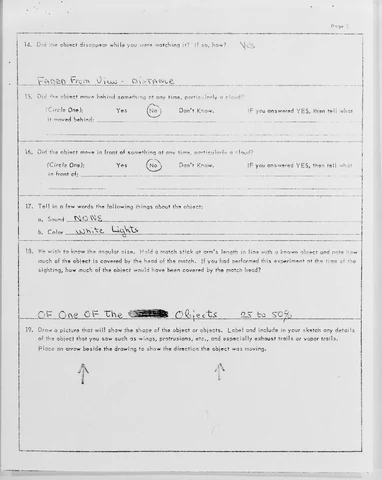 Page 5
14. Did the object disappear while you were watching it? If so, how? Yes
FADED From View - DISTANCE
15. Did the object move behind something at any time, particularly a cloud?
(Circle One): Yes No Don't Know. IF you answered YES, then tell what
it moved behind:
16. Did the object move in front of something at any time, particularly a cloud?
(Circle One): Yes No Don't Know. IF you answered YES, then tell what
in front of:
17. Tell in a few words the following things about the object:
a. Sound NONE
b. Color White Lights
18. We wish to know the angular size. Hold a match stick at arm's length in line with a known object and note how
much of the object is covered by the head of the match. If you had performed this experiment at the time of the
sighting, how much of the object would have been covered by the match head?
OF One OF The Objects 25 to 50%
19. Draw a picture that will show the shape of the object or objects. Label and include in your sketch any details
of the object that you saw such as wings, protrusions, etc., and especially exhaust trails or vapor trails.
Place an arrow beside the drawing to show the direction the object was moving.